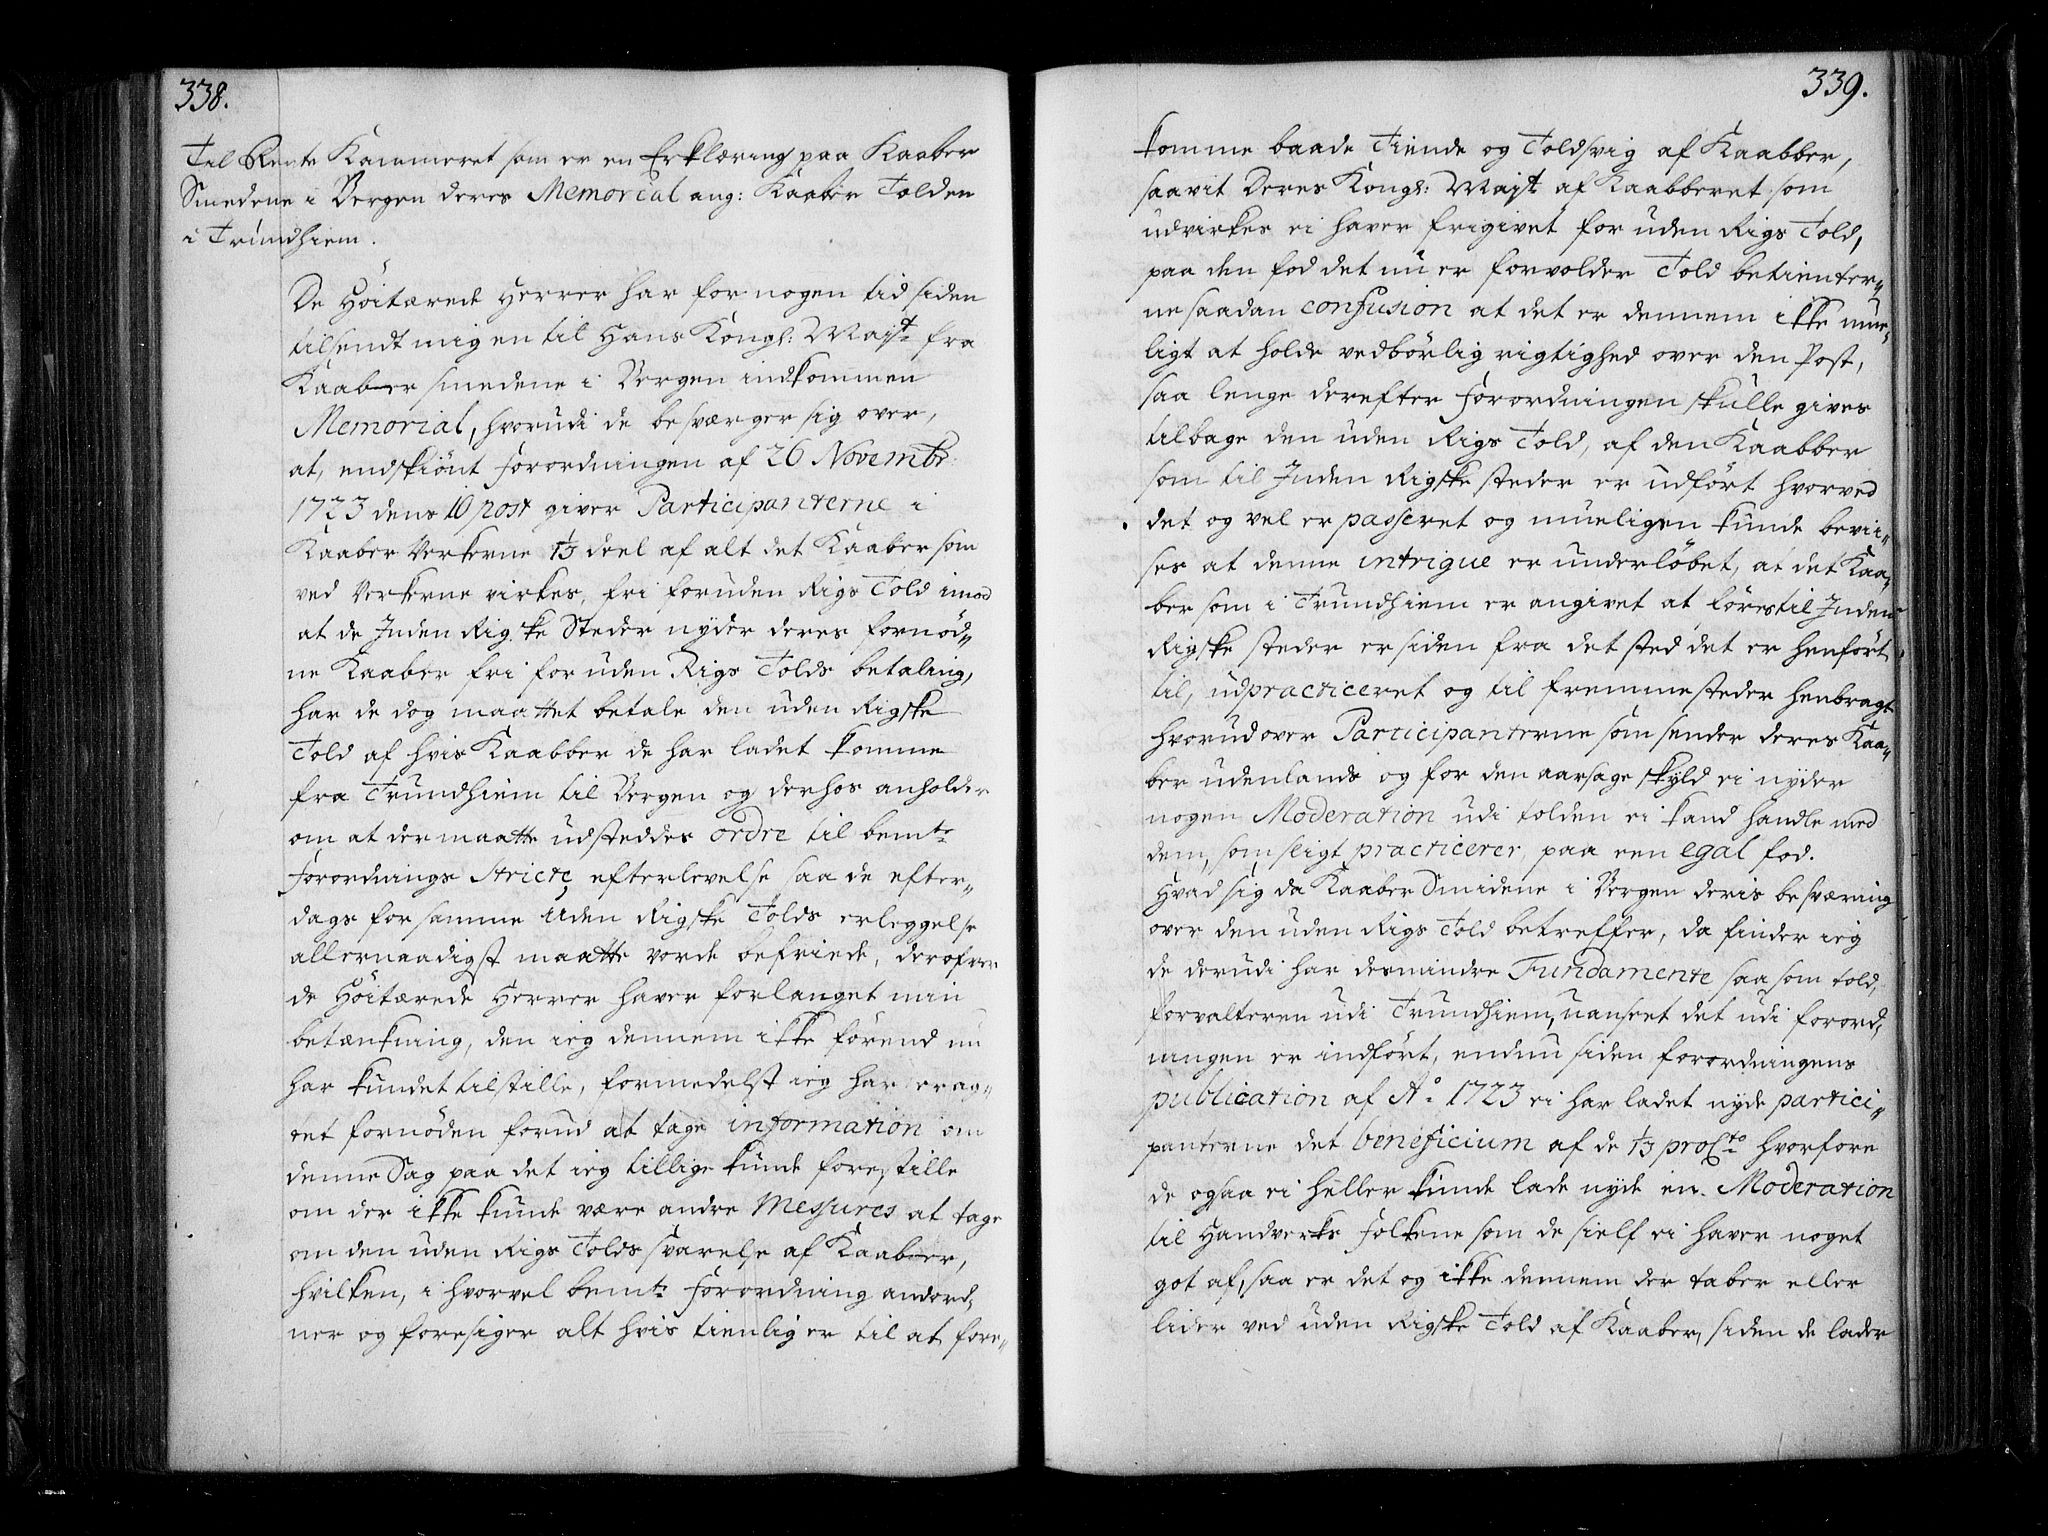 338.
Til Rente Kammeret som er en Erklæring paa Kaaber
Smedene i Bergen deres Memorial ang: Kaaber Tolden
i Trundhiem.
De Höitærede Herrer har for nogen tid siden
tilsendt mig en til Hans Kongl: Mayt fra
Kaaber smedene i Bergen indkommen
Memorial, hvorudi de besværger sig over,
at, endskiönt forordningen af 26 Novembr:
1723 dens 10 post giver Participanterne i
Kaaber Verkerne 1/3 deel af alt det Kaaber som
ved Verkerne virkes, fri foruden Rigs Told imod
at de Inden Rigske Steder nyder deres fornöd„
ne Kaaber fri for uden Rigs Tolds betaling,
har de dog maattet betale den uden Rigske
Told af hvis Kaabber de har ladet komme
fra Trundhiem til Bergen og derhos anholder
om at der maatte udsteddes ordre til bemte
forordnings Stricte efterlevelse saa de efter„
dags for samme Uden Rigske Tolds erleggelse
allernaadigst maatte vorde befriede, derofver
de Höitærede Herrer haver forlanget min
betænkning, den ieg dennem ikke förend nu
har kundet tilstille, formedelst ieg har erag„
tet fornöden forud at tage information om
denne Sag paa det ieg tillige kunde forestille
om der ikke kunde være andre Messures at tage
om den uden Rigs Tolds svarelse af Kaaber,
hvilken, i hvorvel bemte forordning anord,
ner og foresiger alt hvis tienlig er til at fore„
339.
komme baade Tiende og Toldsvig af Kaabber,
saavit Deres Kongl: Mayt af Kaabberet som
udvirkes ei haver frigivet for uden Rigs Told,
paa den fod det nu er forvolder Told betienter„
ne saadan confusion at det er dennem ikke mue„
ligt at holde vedbörlig rigtighed over den Post,
saa lenge derefter forordningen skulle gives
tilbage den uden Rigs Told, af den Kaabber
som til Inden Rigske steder er udfört hvorved
det og vel er passeret og mueligen kunde bevii„
ses at denne intrigue er underlöbet, at det Kaa„
ber som i Trundhiem er angivet at föres til Inden
Rigske steder er siden fra det sted det er henfört
til, udpracticeret og til fremmesteder henbragt
hvorudover Participanterne som sender deres Kaa„
ber udenlands og for den aarsage skyld ei nyder
nogen Moderation udi tolden ei kand handle med
dem, som sligt practicerer, paa een egal fod.
Hvad sig da Kaaber Smidene i Bergen deris besværing
over den uden Rigs Told betreffer, da finder ieg
de derudi har desmindre Fundamente saa som told,
forvalteren udi Trundhiem, uanseet det udi forord,
ningen er indfört, endnu siden forordningens
publication af Ao 1723 ei har ladet nyde partici„
panterne det beneficium af de 1/3 proCto hvorfore
de ogsaa ei heller kunde lade nyde en Moderation
til Handverks Folkene som de sielf ei haver noget
got af, saa er det og ikke dennem der taber eller
lider ved uden Rigske Told af Kaaber, siden de lader